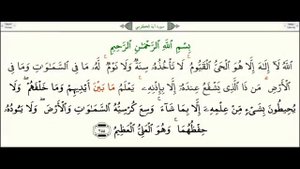 سورة آية الكرسي
بِسْمِ اللَّهِ الرَّحْمَٰنِ الرَّحِيمِ
اللَّهُ لَا إِلَٰهَ إِلَّا هُوَ الْحَيُّ الْقَيُّومُ ۚ لَا تَأْخُذُهُ سِنَةٌ وَلَا نَوْمٌ ۚ لَّهُ مَا فِي السَّمَاوَاتِ وَمَا فِي
الْأَرْضِ ۗ مَن ذَا الَّذِي يَشْفَعُ عِندَهُ إِلَّا بِإِذْنِهِ ۚ يَعْلَمُ مَا بَيْنَ أَيْدِيهِمْ وَمَا خَلْفَهُمْ ۖ وَلَا
يُحِيطُونَ بِشَيْءٍ مِّنْ عِلْمِهِ إِلَّا بِمَا شَاءَ ۚ وَسِعَ كُرْسِيُّهُ السَّمَاوَاتِ وَالْأَرْضَ ۖ وَلَا يَئُودُهُ
حِفْظُهُمَا ۚ وَهُوَ الْعَلِيُّ الْعَظِيمُ